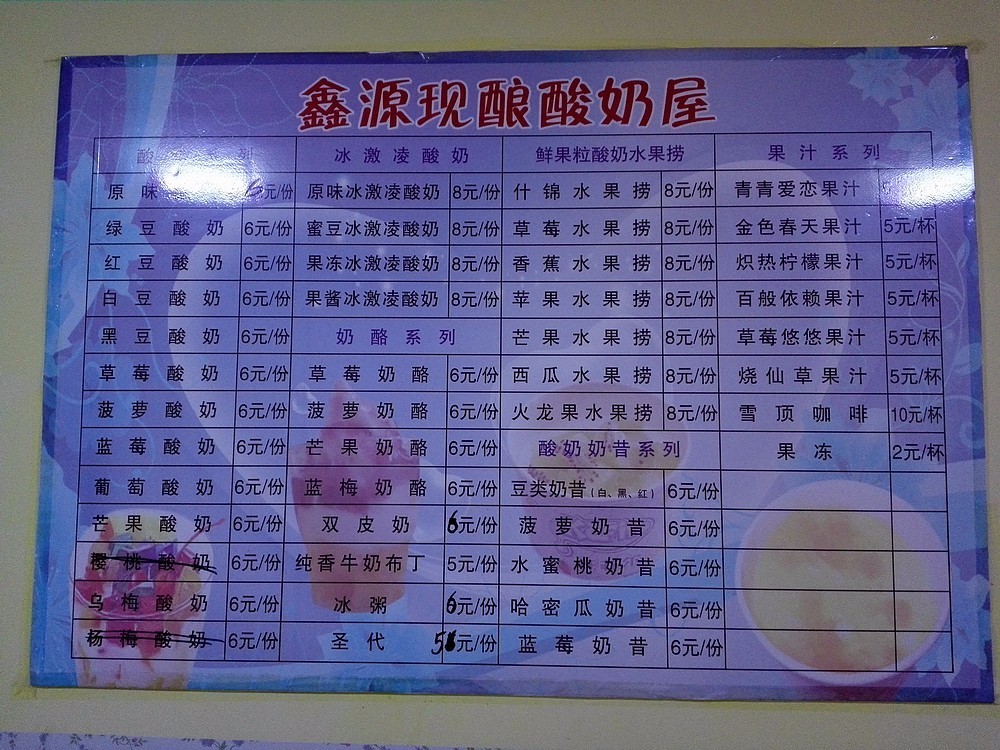 鑫源现酿酸奶屋
酸 系列 冰激凌酸奶 鲜果粒酸奶水果捞 果汁系列
原味 6元/份 原味冰激凌酸奶 8元/份 什锦水果捞 8元/份 青青爱恋果汁
绿豆酸奶 6元/份 蜜豆冰激凌酸奶 8元/份 草莓水果捞 8元/份 金色春天果汁 5元/杯
红豆酸奶 6元/份 果冻冰激凌酸奶 8元/份 香蕉水果捞 8元/份 炽热柠檬果汁 5元/杯
白豆酸奶 6元/份 果酱冰激凌酸奶 8元/份 苹果水果捞 8元/份 百般依赖果汁 5元/杯
黑豆酸奶 6元/份 奶酪系列 芒果水果捞 8元/份 草莓悠悠果汁 5元/杯
草莓酸奶 6元/份 草莓奶酪 6元/份 西瓜水果捞 8元/份 烧仙草果汁 5元/杯
菠萝酸奶 6元/份 菠萝奶酪 6元/份 火龙果水果捞 8元/份 雪顶咖啡 10元/杯
蓝莓酸奶 6元/份 芒果奶酪 6元/份 酸奶奶昔系列 果冻 2元/杯
葡萄酸奶 6元/份 蓝梅奶酪 6元/份 豆类奶昔(白、黑、红) 6元/份
芒果酸奶 6元/份 双皮奶 6元/份 菠萝奶昔 6元/份
樱桃酸奶 6元/份 纯香牛奶布丁 5元/份 水蜜桃奶昔 6元/份
乌梅酸奶 6元/份 冰粥 6元/份 哈密瓜奶昔 6元/份
杨梅酸奶 6元/份 圣代 5元/份 蓝莓奶昔 6元/份